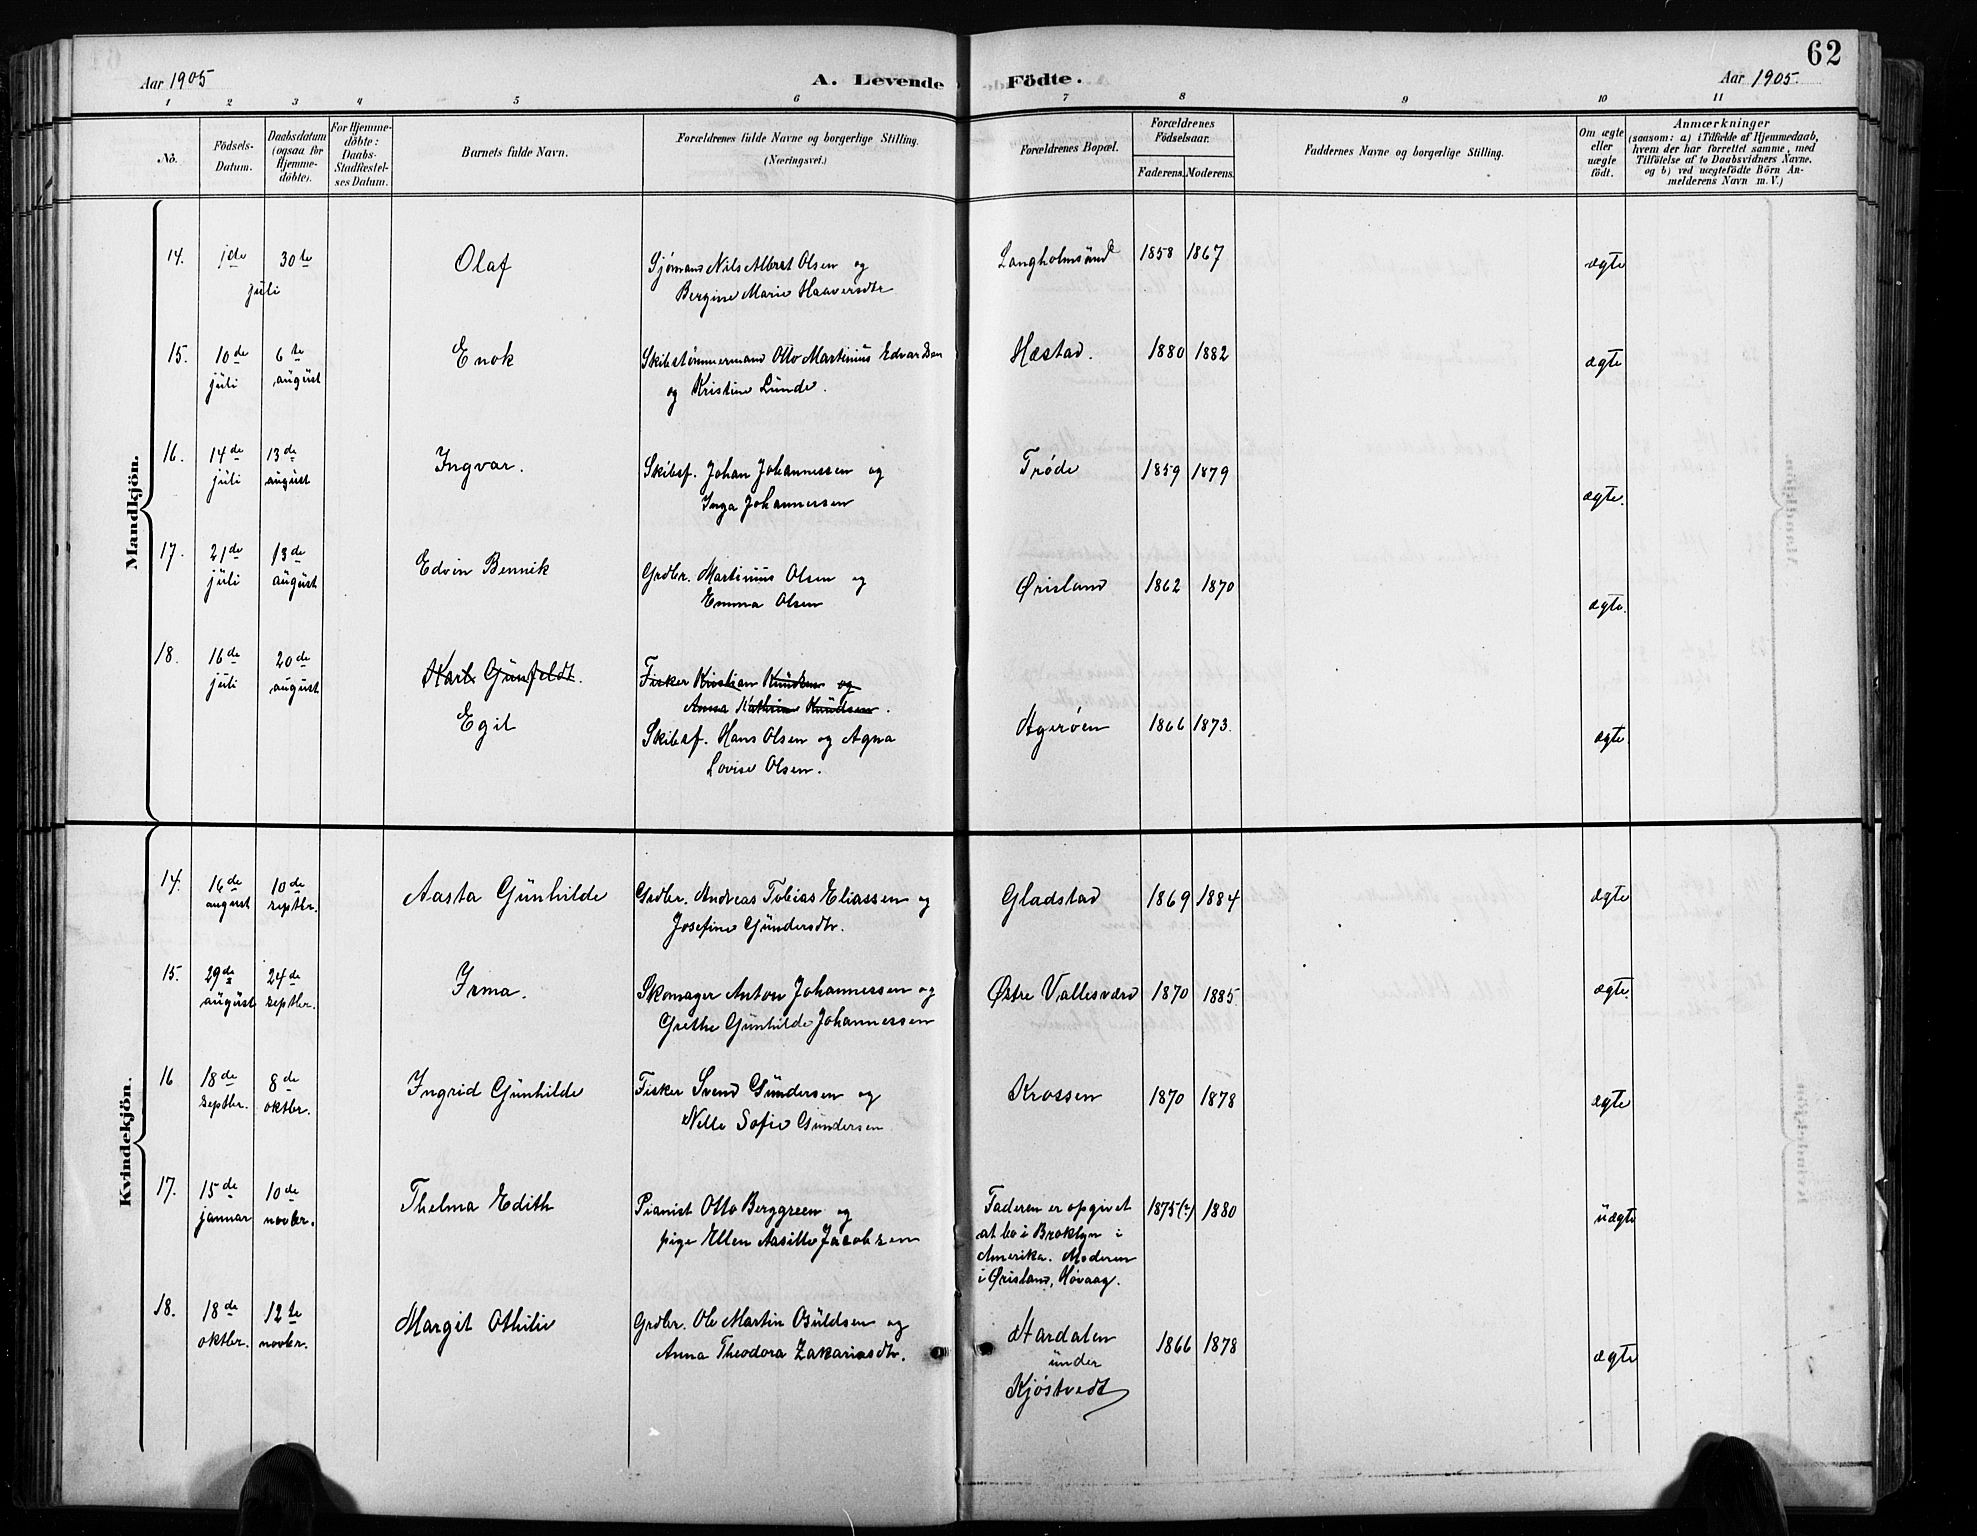 62
Aar 1905
A. Levende Födte.
Aar 1905.
1 2 3 4 5 6 7 8 9 10 11
No.
Födsels-
Datum.
Daabsdatum
(ogsaa for
Hjemme-
döbte).
For Hjemme-
döbte:
Daabs-
Stadfæstel-
ses Datum.
Barnets fulde Navn.
Forældrenes fulde Navne og borgerlige Stilling.
(Næringsvei.)
Forældrenes Bopæl.
Forældrenes
Födselsaar.
Faderens. Moderens.
Faddernes Navne og borgerlige Stilling.
Om ægte
eller
uægte
født.
Anmærkninger
(saasom: a) i Tilfælde af Hjemmedaab,
hvem der har forrettet samme, med
Tilföielse af to Daabsvidners Navne,
og b) ved uægtefödte Börn An-
melderens Navn m. V.)
Mandkjön.
14. 1de 30te Olaf Sjømand Nils Albert Olsen og Langholmsünd 1858 1867 ægte
juli Bergine Marie Haaversdtr
15. 10de 6te Enok Skibstømmermand Otto Martinius Edvardsen Hæstad. 1880 1882 ægte
juli august og Kristine Lünde.
16. 14de 13de Ingvar. Skibsf. Johan Johannessen og Trøde 1859 1879 ægte.
juli august Inga Johannessen
17. 21de 13de Edvin Bennik Grdbr. Martinius Olsen og Ørisland 1862 1870 ægte.
juli august Emma Olsen
18. 16de 20de Karl Günfeldt. Fisker Kristian Knudsen og
juli august Anna Kathrine Knudsen.
Egil Skibsf. Hans Olsen og Agna Agerøen 1866 1873. ægte
Lovise Olsen.
Kvindekjön.
14. 16de 10de Aasta Günhilde Grdbr. Andreas Tobias Eliassen og Gladstad 1869 1884 ægte
august septbr. Josefine Gündersdtr.
15. 29de 24de Irma. Skomager Anton Johannessen og Østre Vallesværd 1870 1885. ægte.
august septbr. Grethe Günhilde Johannessen
16 18de 8de Ingrid Günhilde Fisker Svend Gündersen og Krossen 1870 1878 ægte
septbr. oktbr. Nelle Sofie Gündersen
17. 15de 10de Thelma Edith Pianist Otto Berggreen og Faderen er opgivet 1875(?) 1880 üægte
januar novbr. pige Ellen Aasille Jacobsen at bo i Broklyn i
Amerika. Moderen
i Ørisland, Høvaag.
18. 18de 12te Margit Othilie Grdbr. Ole Martin Büldsen og Hardalen 1866 1878 ægte
oktbr. novbr. Anna Theodora Zakariasdtr. ünder
Kjøstvedt